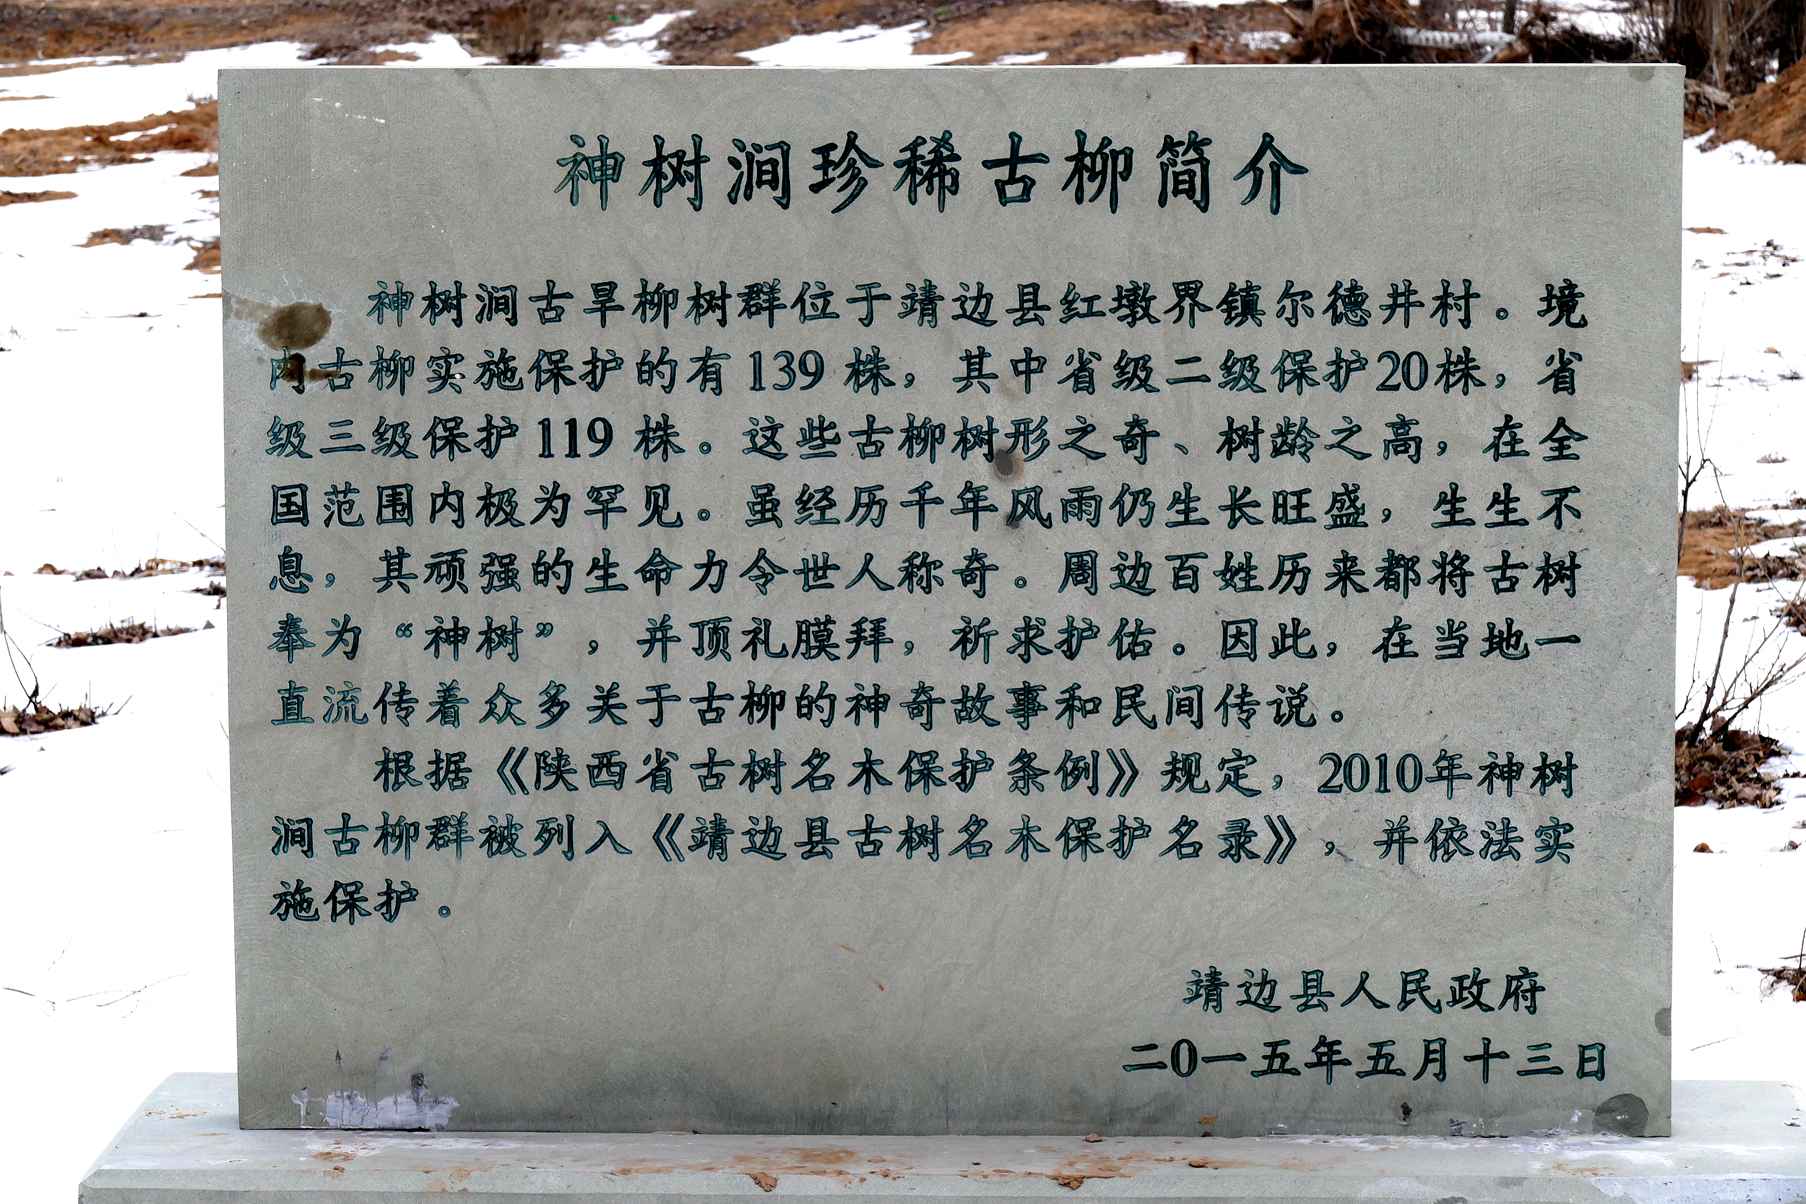 神树涧珍稀古柳简介
神树涧古旱柳树群位于靖边县红墩界镇尔德井村。境
内古柳实施保护的有139株，其中省级二级保护20株，省
级三级保护119株。这些古柳树形之奇、树龄之高，在全
国范围内极为罕见。虽经历千年风雨仍生长旺盛，生生不
息，其顽强的生命力令世人称奇。周边百姓历来都将古树
奉为“神树”，并顶礼膜拜，祈求护佑。因此，在当地一
直流传着众多关于古柳的神奇故事和民间传说。
根据《陕西省古树名木保护条例》规定，2010年神树
涧古柳群被列入《靖边县古树名木保护名录》，并依法实
施保护。
靖边县人民政府
二0一五年五月十三日